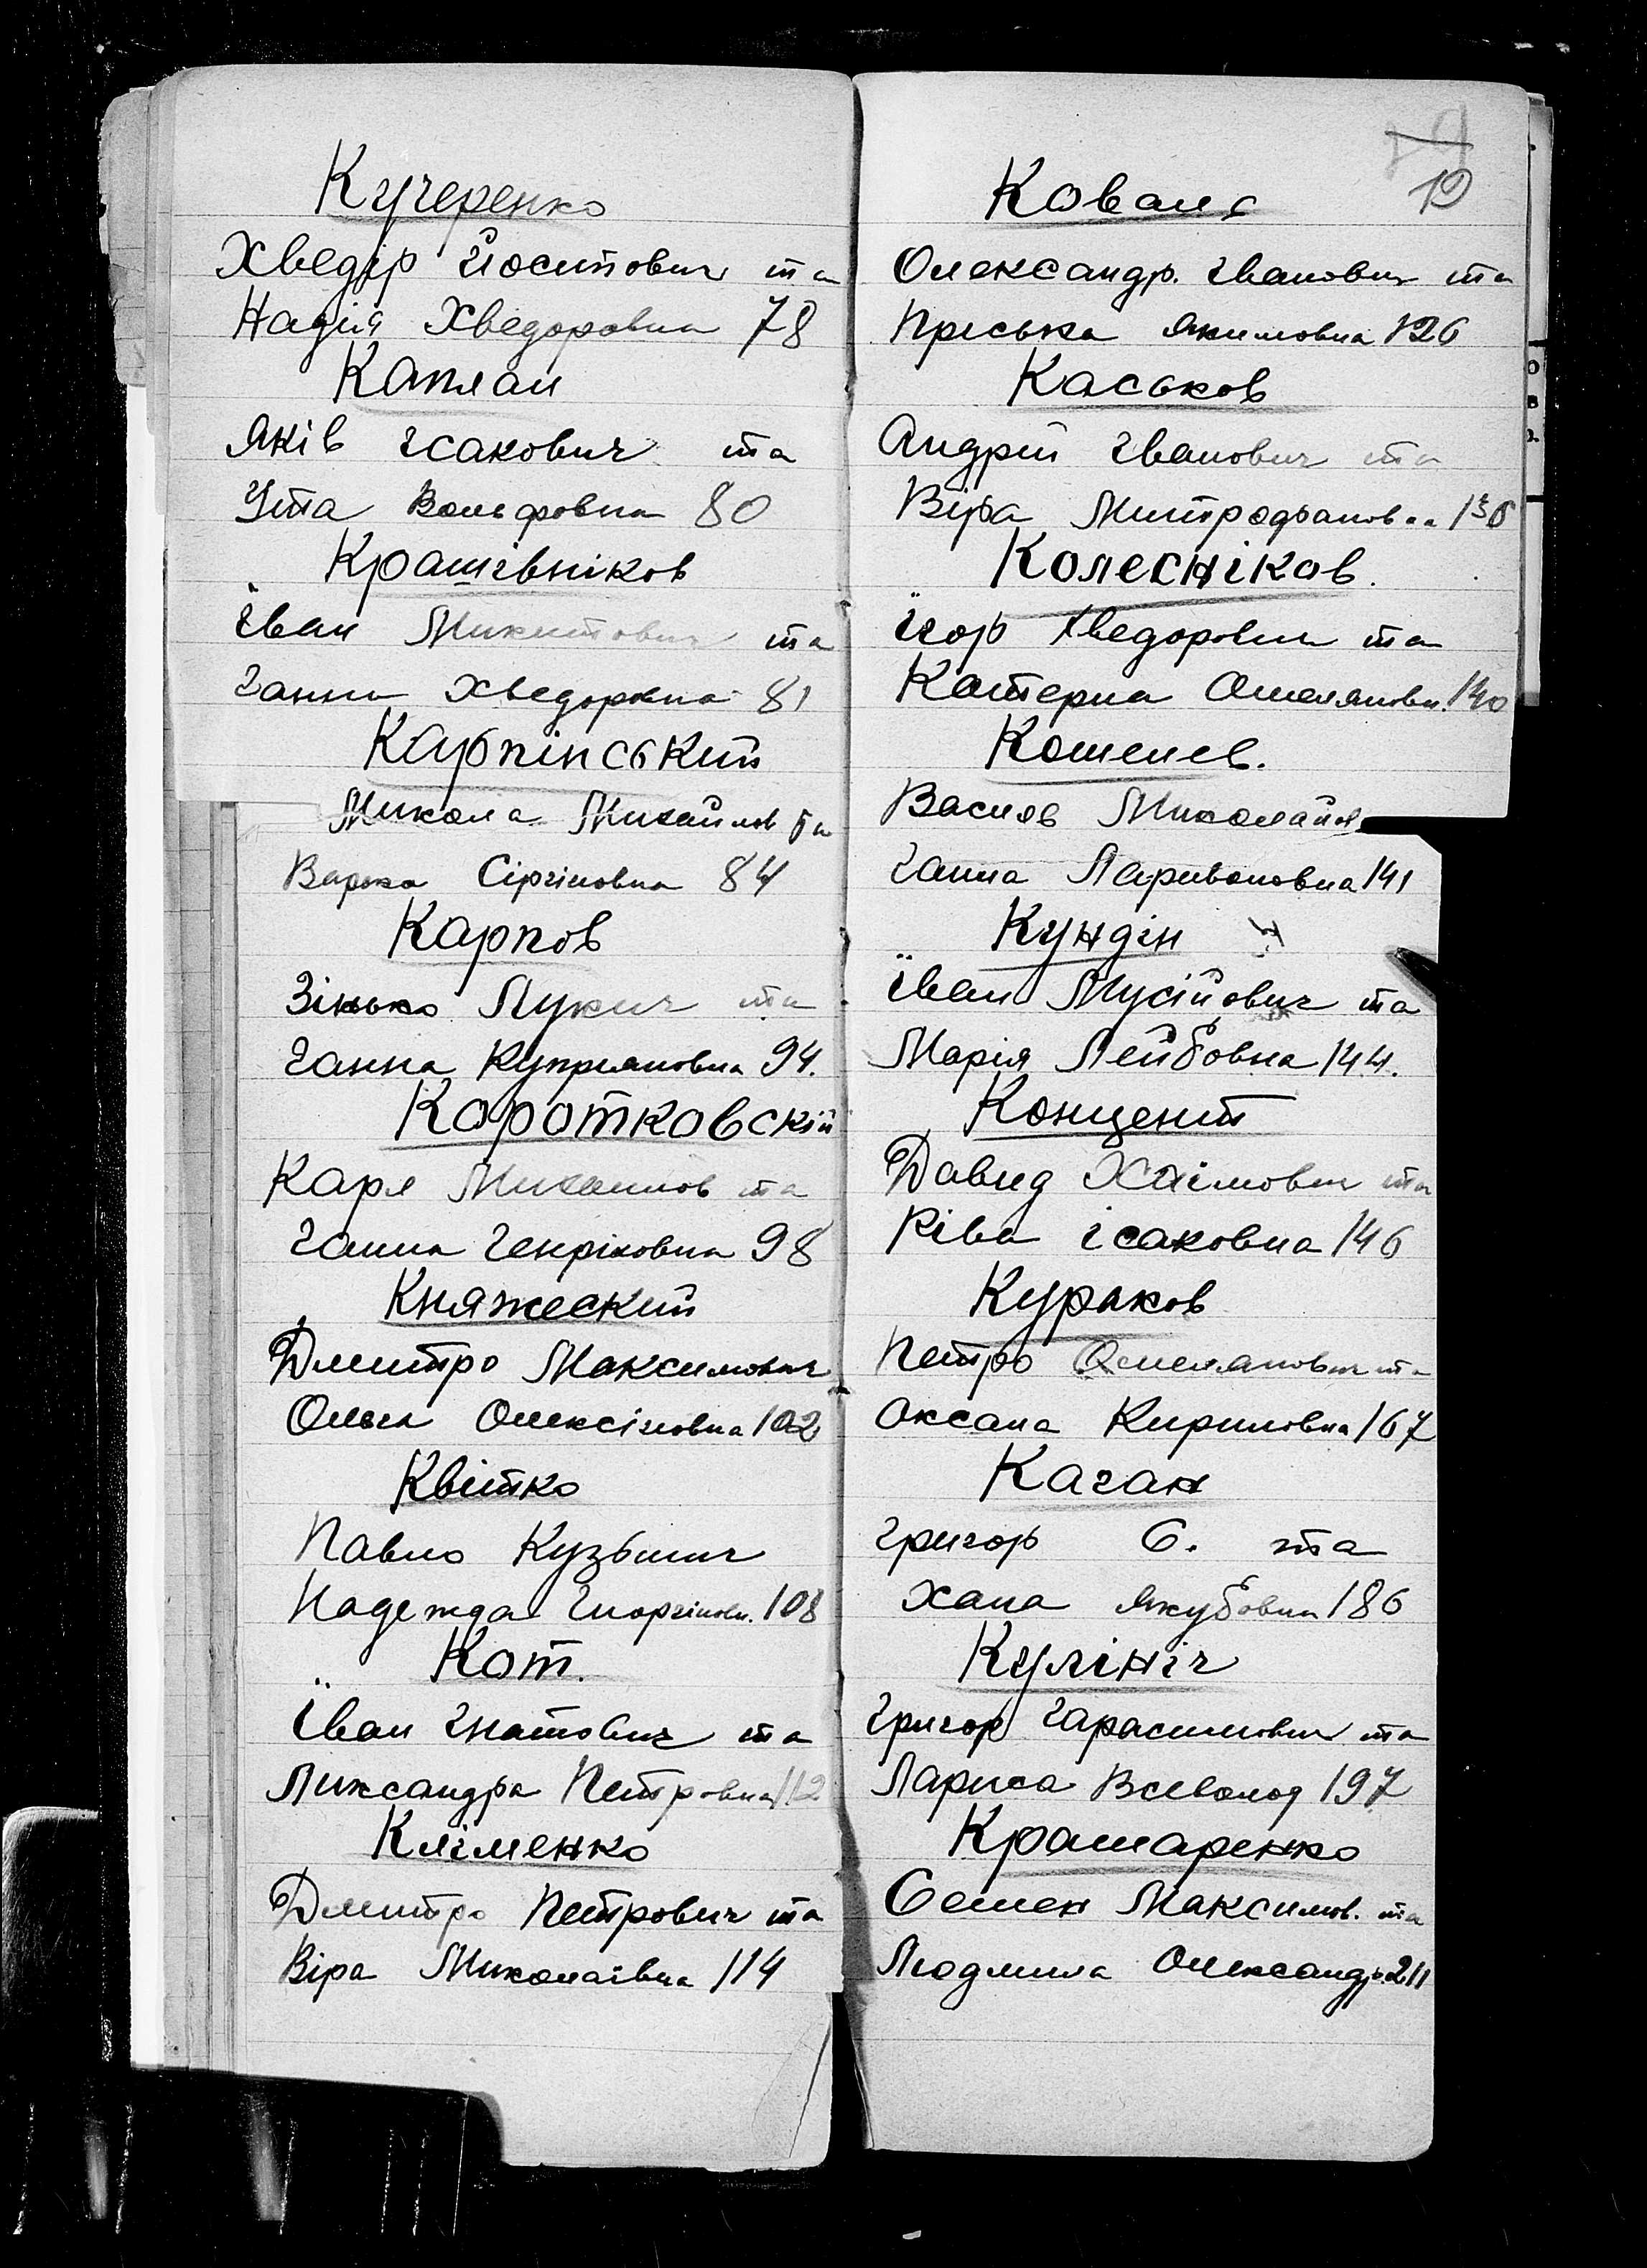 Кучеренко
Хведір Йосипович та
Надія Хведоровна 78
Каплан
Яків Ісакович та
Ута Вольфовна 80
Крашівніков
Їван Микитович та
Ганна Хведоровна 81
Карпінський
Микола Михайлов та
Варка Сіргіиовна 84
Карпов
Зінько Лукич та
Ганна Куприяновна 94.
Коротковскій
Карл Михаилов та
Ганна Генріховна 98
Княжеский
Дмитро Максимович
Ольга Олексіиовна 102
Квітко
Павло Кузьмич
Надежда Гиоргіиовн. 108
Кот.
Їван Гнатович та
Ликсандра Петровна 112
Кліменко
Дмитро Петрович та
Віра Миколаівна 114
12
Коваль
Олександр. Іванович та
Пріська Якимовна 126
Каськов
Андрій Іванович та
Віра Митрофановна 136
Колесніков.
Їгор Хведорович та
Катерна Омеляновн. 140
Кошелев.
Василь Миколайов
Ганна Ларивоновна 141
Кундін
Їван Мусійович та
Марія Лейбовна 144.
Концент
Давид Хаімович та
Ріва Ісаковна 146
Кураков
Петро Омелянович та
Оксана Кириловна 167
Каган
Григор С. та
Хана Якубовна 186
Кулініч
Григор Гарасимович та
Лариса Всеволод 197
Крамаренко
Семен Максимов. та
Людмила Олександр 211